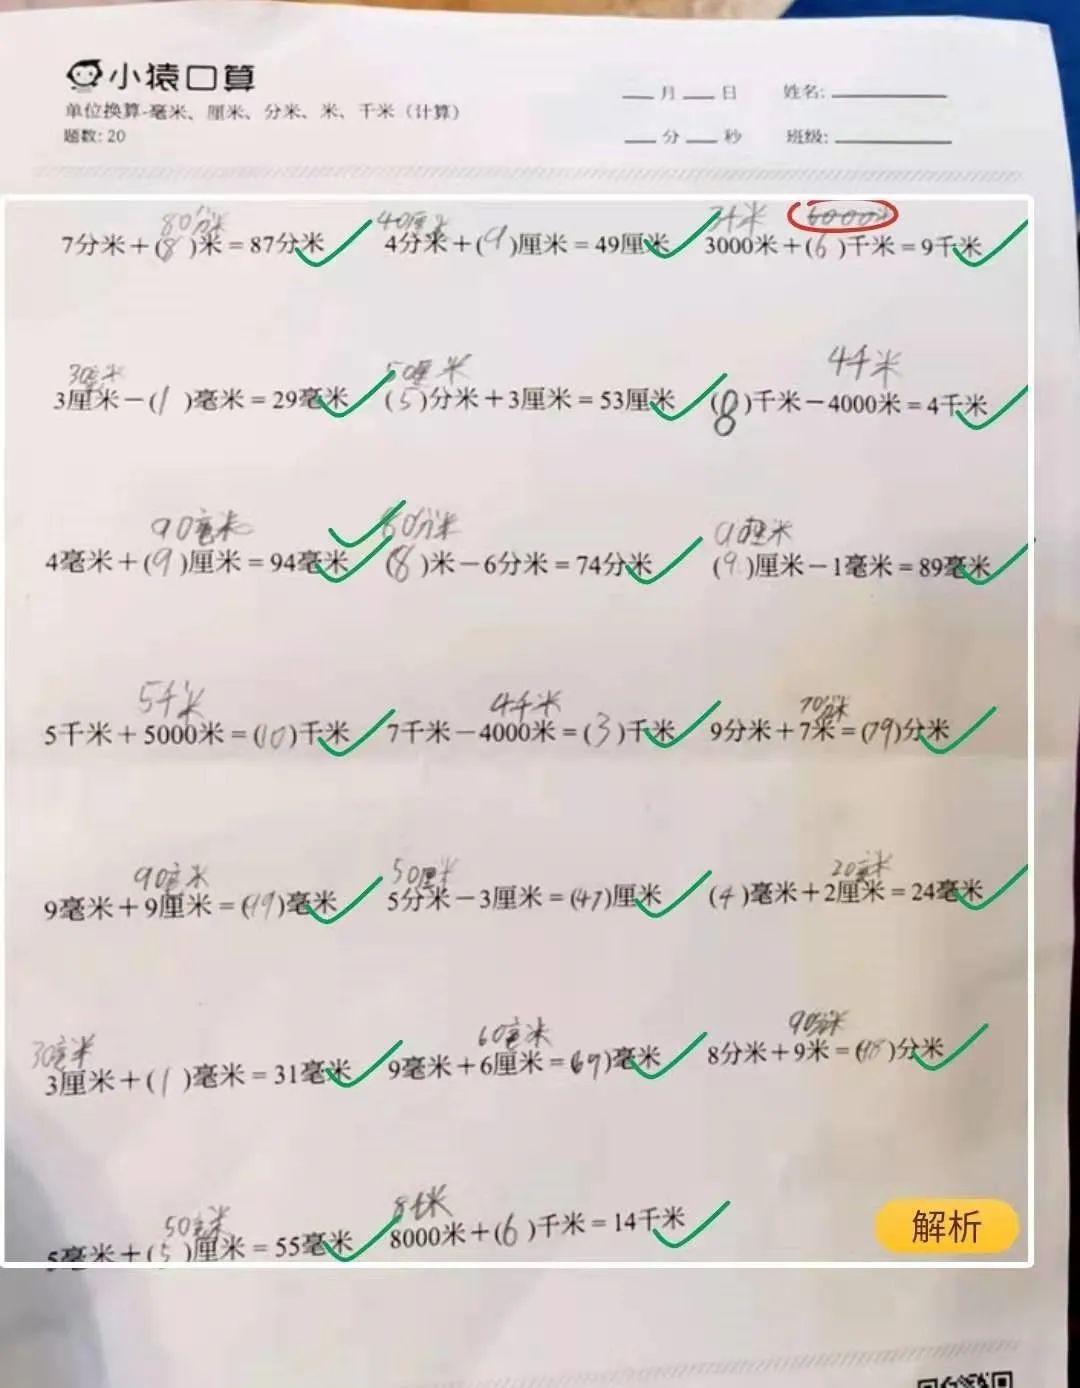 小猿口算
单位换算-毫米、厘米、分米、米、千米（计算）
题数: 20
月 日 姓名:
分 秒 班级:
80分米 40厘米 3千米 6000米
7分米＋(8)米＝87分米 4分米＋(9)厘米＝49厘米 3000米＋(6)千米＝9千米
30毫米 50厘米 4千米
3厘米－(1)毫米＝29毫米 (5)分米＋3厘米＝53厘米 (8)千米－4000米＝4千米
90毫米 80分米
4毫米＋(9)厘米＝94毫米 (8)米－6分米＝74分米 (9)厘米－1毫米＝89毫米
5千米 4千米 70分米
5千米＋5000米＝(10)千米 7千米－4000米＝(3)千米 9分米＋7米＝(79)分米
90毫米 50厘米 20毫米
9毫米＋9厘米＝(99)毫米 5分米－3厘米＝(47)厘米 (4)毫米＋2厘米＝24毫米
30毫米 60毫米 90分米
3厘米＋(1)毫米＝31毫米 9毫米＋6厘米＝(69)毫米 8分米＋9米＝(98)分米
50毫米 8千米
5毫米＋(5)厘米＝55毫米 8000米＋(6)千米＝14千米
解析